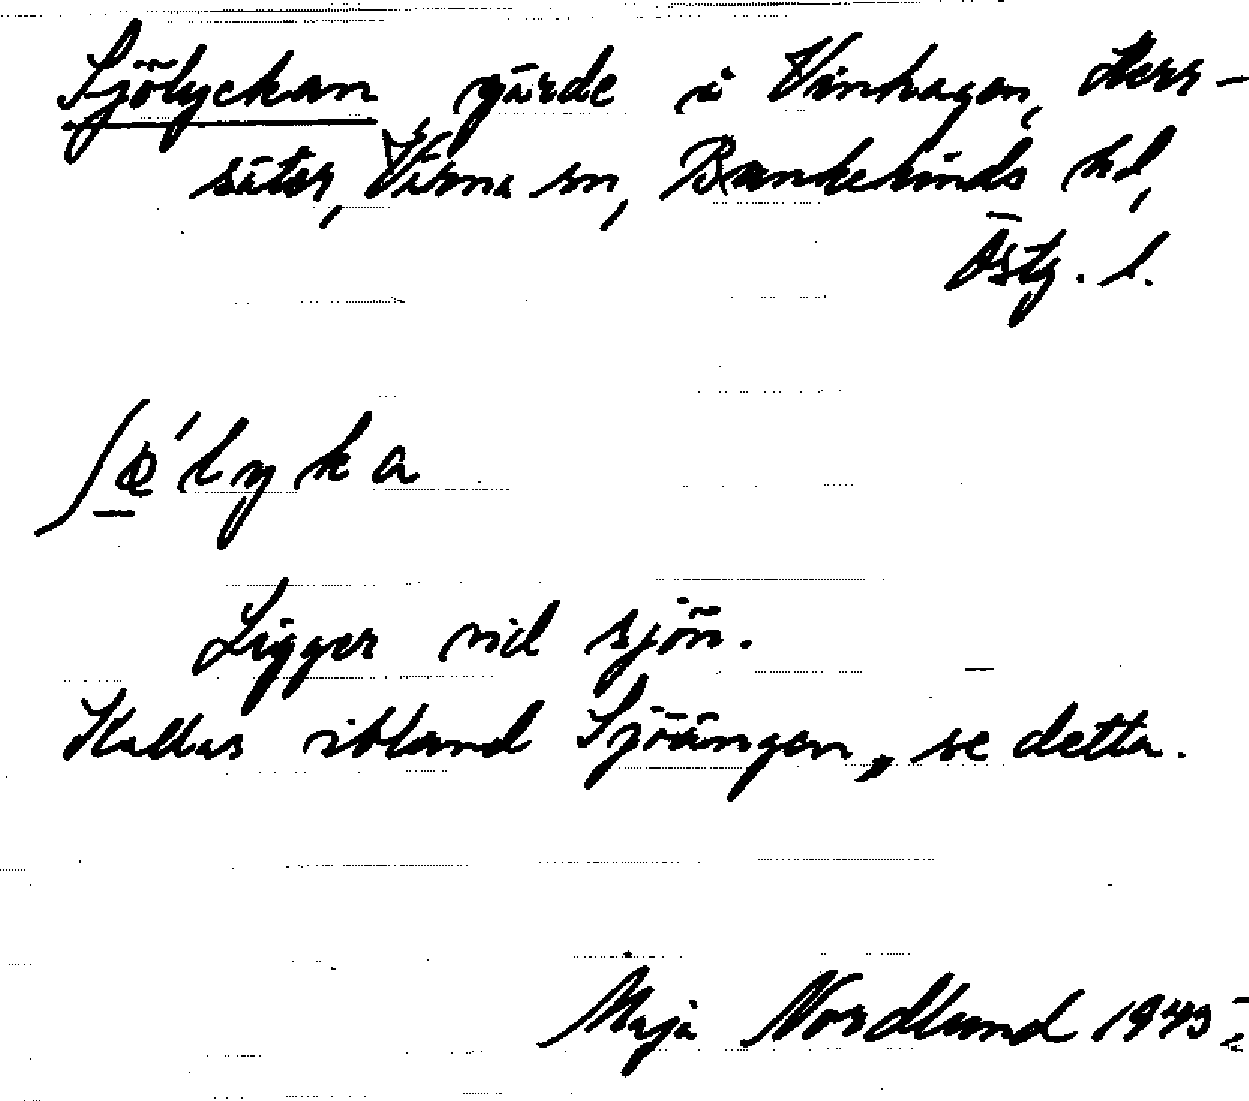 Sjölyckan gärde i Vinhagen, Herr-
säter, Värna sn, Bankekinds hd,
Östg. l.
ʃœ̱'lyka
Ligger vid sjön.
Kallas ibland Sjöängen, se detta.
Maja Nordlund 1943